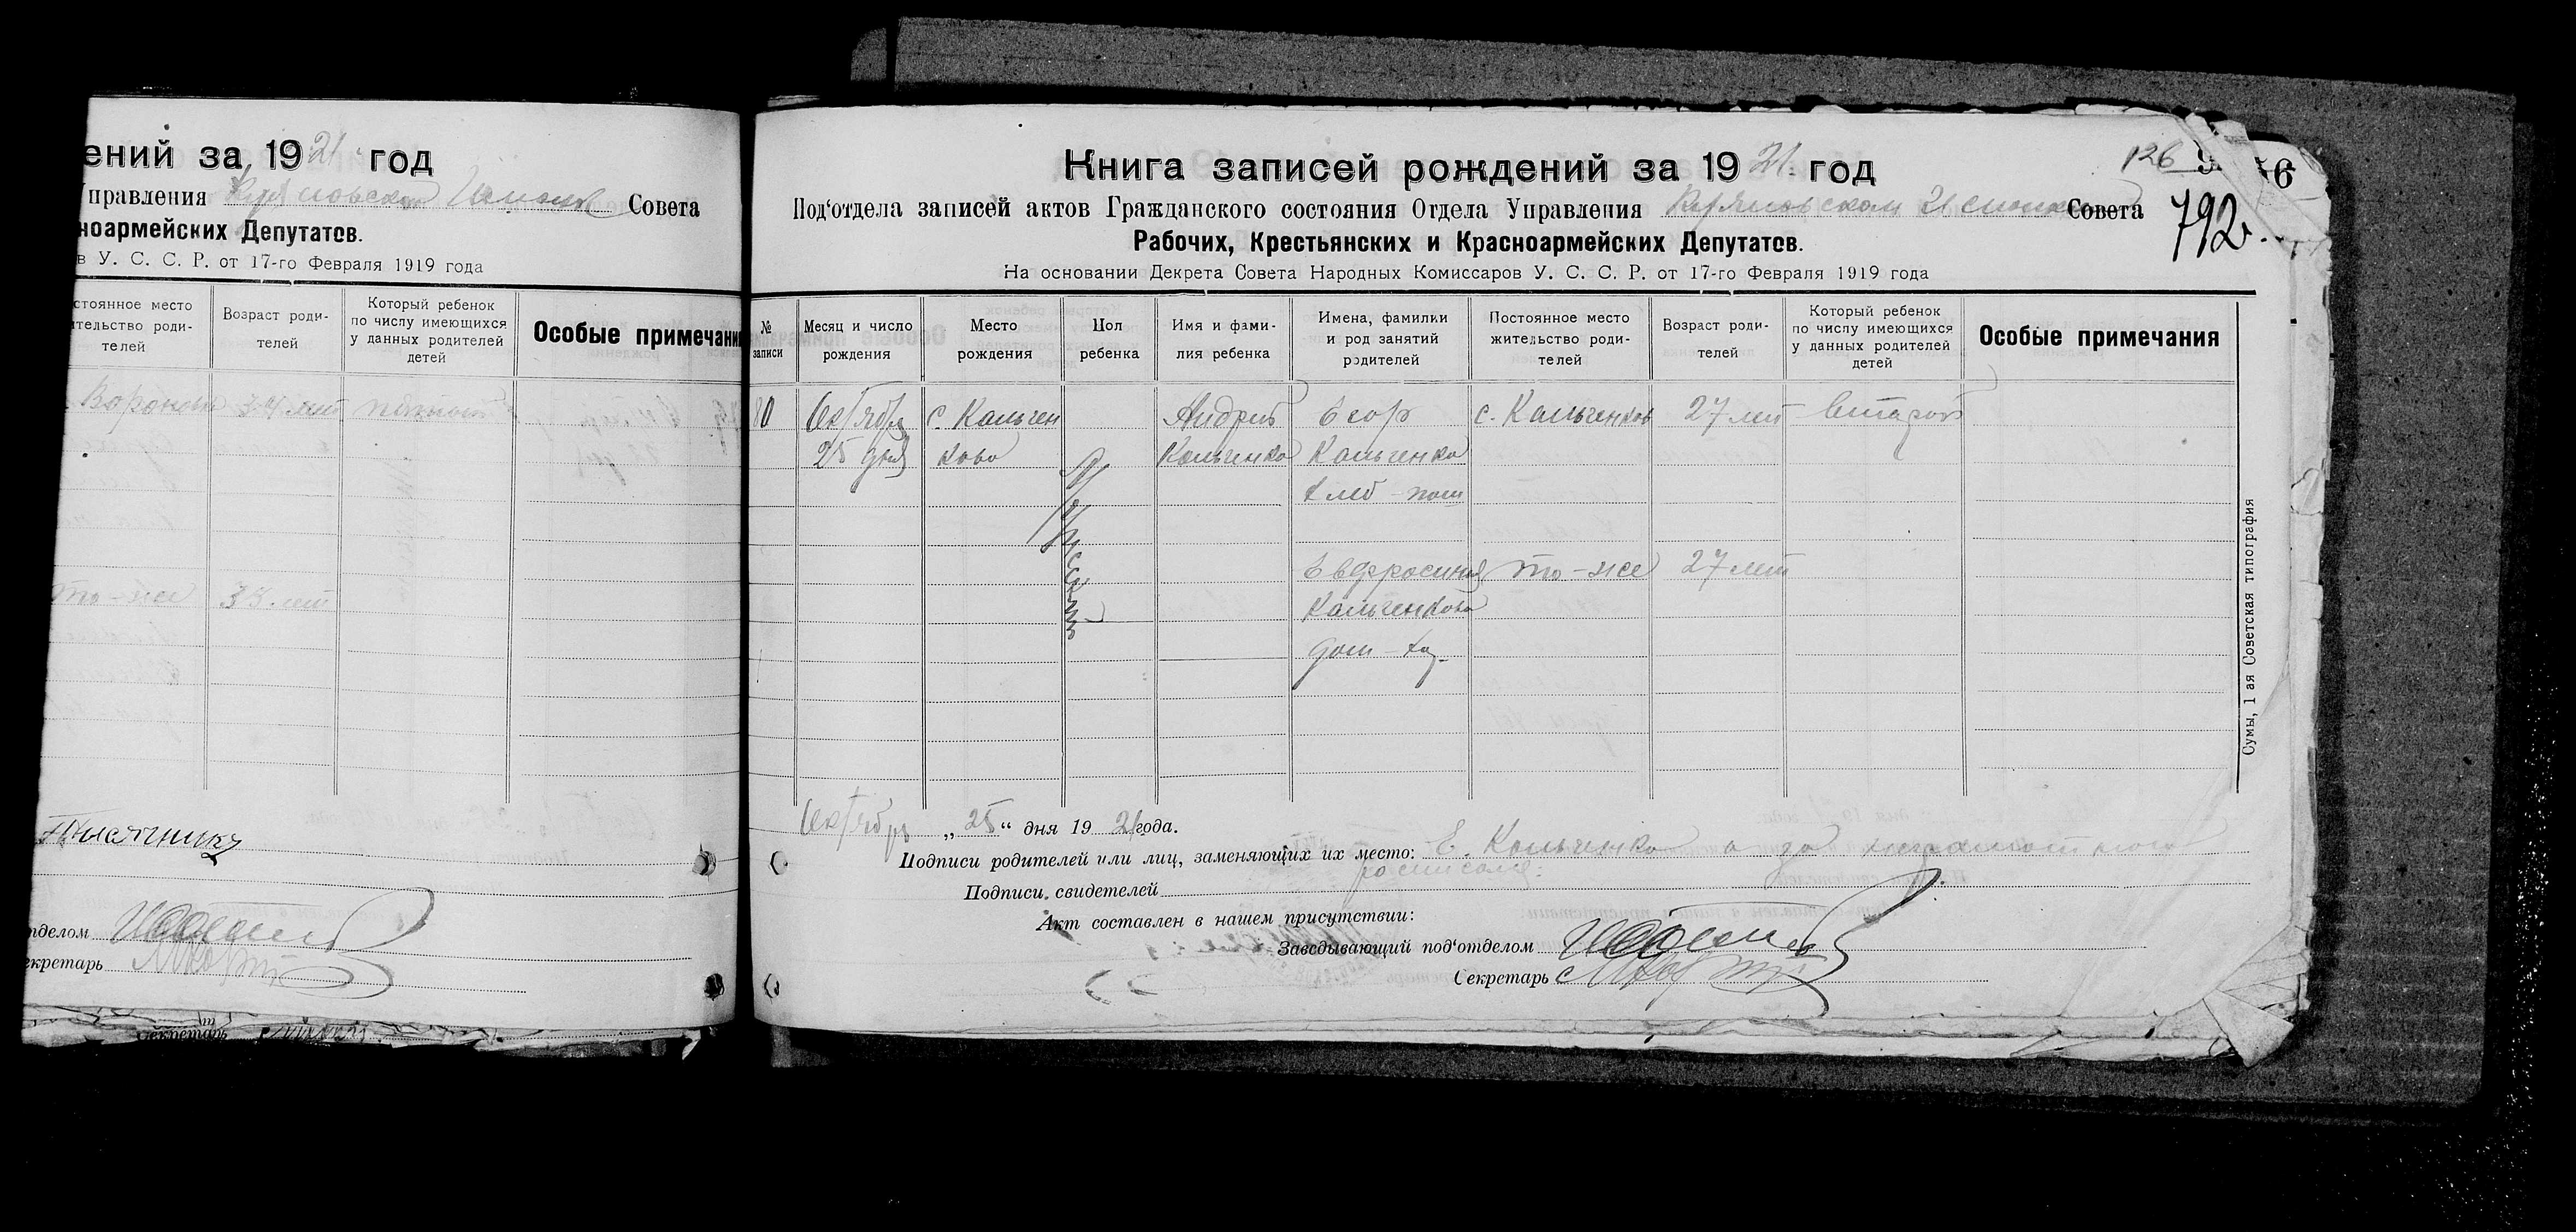 ений за 1921 год
Управления Совета
ноармейских Депутатов.
в У. С. С. Р. от 17-го Февраля 1919 года
стоянное место
ительство роди-
телей
Возраст роди-
телей
Который ребенок
по числу имеющихся
у данных родителей
детей
Особые примечания
34 лет
то-же
тделом
екретарь
Секретарь
Книга записей рождений за 1921 год
126
6
792.
Под'отдела записей актов Гражданского состояния Отдела Управления Совета
Рабочих, Крестьянских и Красноармейских Депутатов.
На основании Декрета Совета Народных Комиссаров У. С. С. Р. от 17-го Февраля 1919 года
№
записи
Месяц и число
рождения
Место
рождения
Пол
ребенка
Имя и фами-
лия ребенка
Имена, фамилии
и род занятий
родителей
Постоянное место
жительство роди-
телей
Возраст роди-
телей
Который ребенок
по числу имеющихся
у данных родителей
детей
Особые примечания
80
Октября
25 дня
с. Кальчен
ково
Мужской
Андрей
Кальченко
Егор
Кальченко
хлеб-паш
с. Кальченков
27 лет
Второй
Евфросиния
Кальченкова
дом-хоз.
то-же
27 лет
Октября „25“ дня 1921 года.
Подписи родителей или лиц, заменяющих их место: Е. Кальченко а за неграмотного
росписался
Подписи свидетелей
Акт составлен в нашем присутствии:
Заведывающий под'отделом
Секретарь
Сумы, 1 ая Советская типография